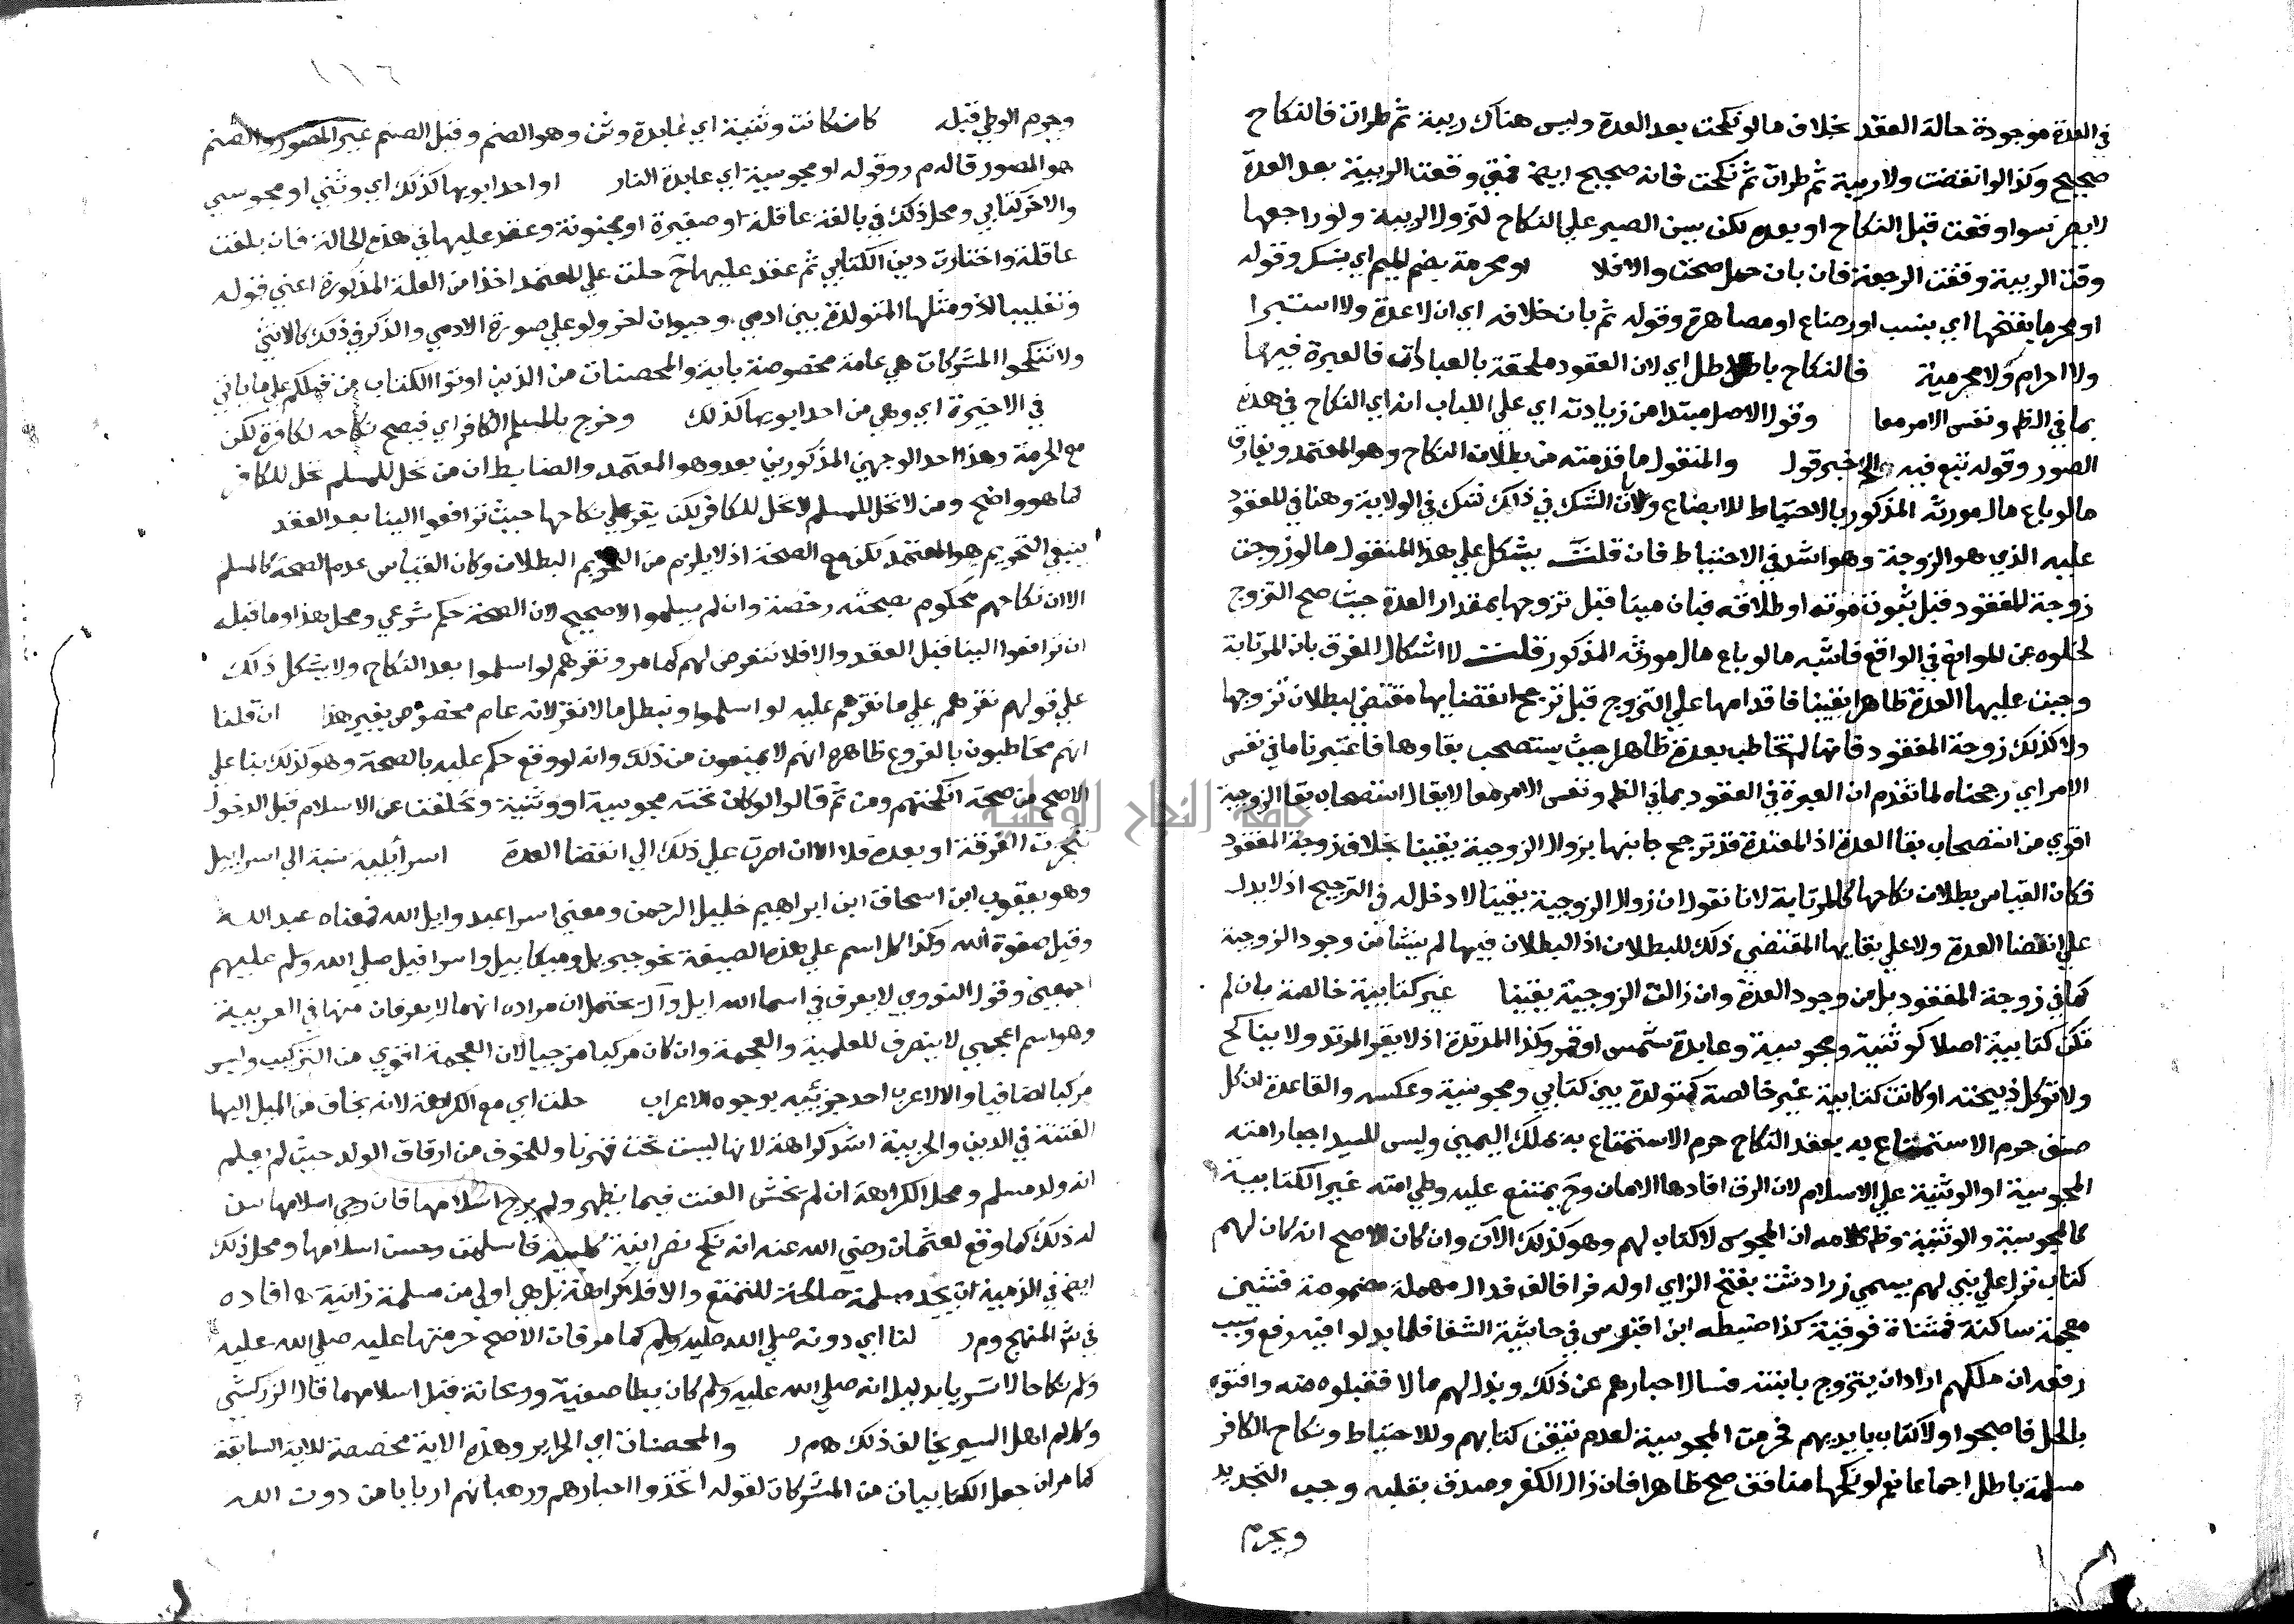 في العدة موجودة حالة العقد بخلاف ما لو نكحت بعد العدة وليس هناك ريبة ثم طرات فالنكاح
صحيح وكذا لو انقضت ولا ريبة ثم طرات ثم نكحت فانه صحيح ايض فمتي وقعت الريبة بعد العدة
لا يضر سوا وقعت قبل النكاح او بعده لكن يسن الصبر علي النكاح لتزول الريبة ولو راجعها
وقت الريبة وقفت الرجعة فان بان حمل صحت والا فلا او محرمة بضم الميم اي بنسك وقوله
او محرما بفتحها اي بنسب او رضاع او مصاهرة وقوله ثم بان خلافه اي ان لا عدة ولا استبرا
ولا احرام ولا محرمية فالنكاح باطل اي لان العقود ملحقة بالعبادات فالعبرة فيها
بما في الظن ونفس الامر معا وقول الاصل مبتدا من زيادته اي علي اللباب انه اي النكاح في هذه
الصور وقوله تبع فيه الخ خبر قول والمنقول ما قدمته من بطلان النكاح وهو المعتمد ويفارق
ما لو باع مال مورثه المذكور بالاحتياط للابضاع ولان الشك في ذلك شك في الولاية وهنا في المعقود
عليه الذي هو الزوجة وهو اشد في الاحتياط فان قلت يشكل علي هذا المنقول ما لو زوجت
زوجة المفقود قبل ثبوت موته او طلاقه فبان ميتا قبل تزوجها بمقدار العدة حيث صح التزوج
لخلوه عن الموانع في الواقع فاشبه ما لو باع مال مورثه المذكور قلت لا اشكال للفرق بان المرتابة
وجبت عليها العدة ظاهرا يقينا فاقدامها علي التزوج قبل ترجح انقضايها مقتض لبطلان تزوجها
ولا كذلك زوجة المفقود فانها لم تخاطب بعدة ظاهرا حيث يستصحب بقاوها فاعتبرنا ما في نفس
الامر اي رجحناه لما تقدم ان العبرة في العقود بما في الظن ونفس الامر معا لا يقال استصحاب بقا الزوجية
اقوي من استصحاب بقا العدة اذ المعتدة قد ترجح جانبها بزوال الزوجية يقينا بخلاف زوجة المفقود
فكان القياس بطلان نكاحها كالمرتابة لانا نقول ان زوال الزوجية يقينا لا دخل له في الترجيح اذ لا يدل
علي انقضا العدة ولا علي بقايها المقتضي ذلك للبطلان اذ البطلان فيها لم ينشا من وجود الزوجية
كما في زوجة المفقود بل من وجود العدة وان زالت الزوجية يقينا غير كتابية خالصة بان لم
تكن كتابية اصلا كوثنية ومجوسية وعابدة شمس او قمر وكذا المرتدة اذ لا يقر المرتد ولا يناكح
ولا توكل ذبيحته او كانت كتابية غير خالصة كمتولدة بين كتابي ومجوسية وعكسه والقاعدة ان كل
صنف حرم الاستمتاع به بعقد النكاح حرم الاستمتاع به بملك اليمين وليس للسيد اجبار امته
المجوسية او الوثنية علي الاسلام لان الرق افادها الامان وح يمتنع عليه وطي امته غير الكتابية
كالمجوسية والوثنية وظ كلامه ان المجوس لا كتاب لهم وهو كذلك الآن وان كان الاصح انه كان لهم
كتاب نزل علي نبي لهم يسمي زرادشت بفتح الزاي اوله فرا فالف فدال مهملة مضمومة فشين
معجمة ساكنة فمثناة فوقية كذا ضبطه ابن اقبرس في حاشية الشفا فلما بدلوا فيه رفع وسبب
رفعه ان ملكهم اراد ان يتزوج بابنته فسال احبارهم عن ذلك وبذل لهم مالا فقبلوه منه وافتوه
بالحل فاصبحوا ولا كتاب بايديهم فحرمت المجوسية لعدم تيقن كتابهم وللاحتياط ونكاح الكافر
مسلمة باطل اجماعا نعم لو نكحها منافق صح ظاهرا فان زال الكفر وصدق بقلبه وجب التجديد
ويحرم
١١٦
وحرم الوطي قبله كان كانت وثنية اي عابدة وثن وهو الصنم وقيل الصنم غير المصور والصنم
هو المصور قاله م ر وقوله او مجوسية اي عابدة النار او احد ابويها كذلك اي وثني او مجوسي
والاخر كتابي ومحل ذلك في بالغة عاقلة او صغيرة او مجنونة وعقد عليها في هذه الحالة فان بلغت
عاقلة واختارت دين الكتابي ثم عقد عليها ح حلت علي المعتمد اخذا من العلة المذكورة اعني قوله
وتغليبا الخ ومثلها المتولدة بين ادمي وحيوان اخر ولو علي صورة الادمي والذكر في ذلك كالانثي
ولا تنكحوا المشركات هي عامة مخصوصة باية والمحصنات من الذين اوتوا الكتاب من قبلكم علي ما ياتي
في الاخيرة اي وهي من احد ابويها كذلك وخرج بالمسلم الكافر اي فيصح نكاحه لكافرة لكن
مع الحرمة وهذا احد الوجهين المذكورين بعد وهو المعتمد والضابط ان من تحل للمسلم تحل للكافر
كما هو واضح ومن لا تحل للمسلم لا تحل للكافر لكن يقر علي نكاحها حيث ترافعوا الينا بعد العقد
ينبغي التحريم هو المعتمد لكن مع الصحة اذ لا يلزم من التحريم البطلان وكان القياس عدم الصحة كالمسلم
الا ان نكاحهم محكوم بصحته رخصة وان لم يسلموا لا صحيح لان الصحة حكم شرعي ومحل هذا وما قبله
ان ترافعوا الينا قبل العقد والا فلا نتعرض لهم كما مر ونقرهم لو اسلموا بعد النكاح ولا يشكل ذلك
علي قولهم نقرهم علي ما نقرهم عليه لو اسلموا ونبطل ما لا نقر لانه عام مخصوص بغير هذا ان قلنا
انهم مخاطبون بالفروع ظاهره انهم لا يمنعون من ذلك وانه لو وقع حكم عليه بالصحة وهو كذلك بنا علي
الاصح من صحة انكحتهم ومن ثم قالوا لو كان تحته مجوسية او وثنية وتخلفت عن الاسلام قبل الدخول
تنجزت الفرقة او بعده فلا الا ان اصرت علي ذلك الي انقضا العدة اسرائيلية نسبة الي اسرائيل
وهو يعقوب ابن اسحاق ابن ابراهيم خليل الرحمن ومعني اسرا عبد وايل الله فمعناه عبد الله
وقيل صفوة الله وكذا كل اسم علي هذه الصيغة نحو جبريل وميكاييل واسرافيل صلي الله وسلم عليهم
اجمعين وقول النووي لا يعرف في اسما الله ايل وآل يحتمل ان مراده انهما لا يعرفان منها في العربية
وهو اسم اعجمي لا ينصرف للعلمية والعجمة وان كان مركبا مزجيا لان العجمة اقوي من التركيب وليس
مركبا اضافيا والا لاعرب احد جزئيه بوجوه الاعراب حلت اي مع الكراهة لانه يخاف من الميل اليها
الفتنة في الدين والحربية اشد كراهة لانها ليست تحت قهرنا وللخوف من ارقاق الولد حيث لم يعلم
انه ولد مسلم ومحل الكراهة ان لم يخش العنت فيما يظهر ولم يرج اسلامها فان رجي اسلامها سن
له ذلك كما وقع لعثمان رضي الله عنه انه نكح نصرانية كلبية فاسلمت وحسن اسلامها ومحل ذلك
ايض في الذمية ان يجد مسلمة صالحة للتمتع والا فلا كراهة بل هي اولي من مسلمة زانية افاده
في ش المنهج وم ر لنا اي دونه صلي الله عليه وسلم كما مر فان الاصح حرمتها عليه صلي الله عليه
وسلم نكاحا لا تسريا بدليل انه صلي الله عليه وسلم كان يطا صفية وريحانة قبل اسلامهما قال الزركشي
وكلام اهل السير يخالف ذلك هم ر والمحصنات اي الحراير وهذه الاية مخصصة للاية السابقة
كما مر ان جعل الكتابيات من المشركات لقوله اتخذوا احبارهم ورهبانهم اربابا من دون الله
جامعة النجاح الوطنية